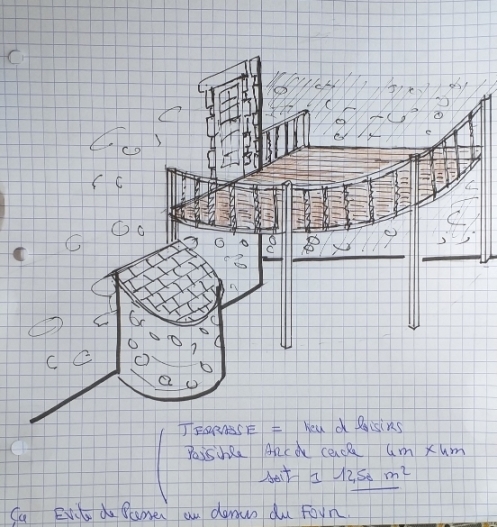 TERRASSE = lieu de loisirs
Possible Arc de cercle 4m x 4m
soit 12,50 m²
Ça Evite de Passer au dessus du Four.